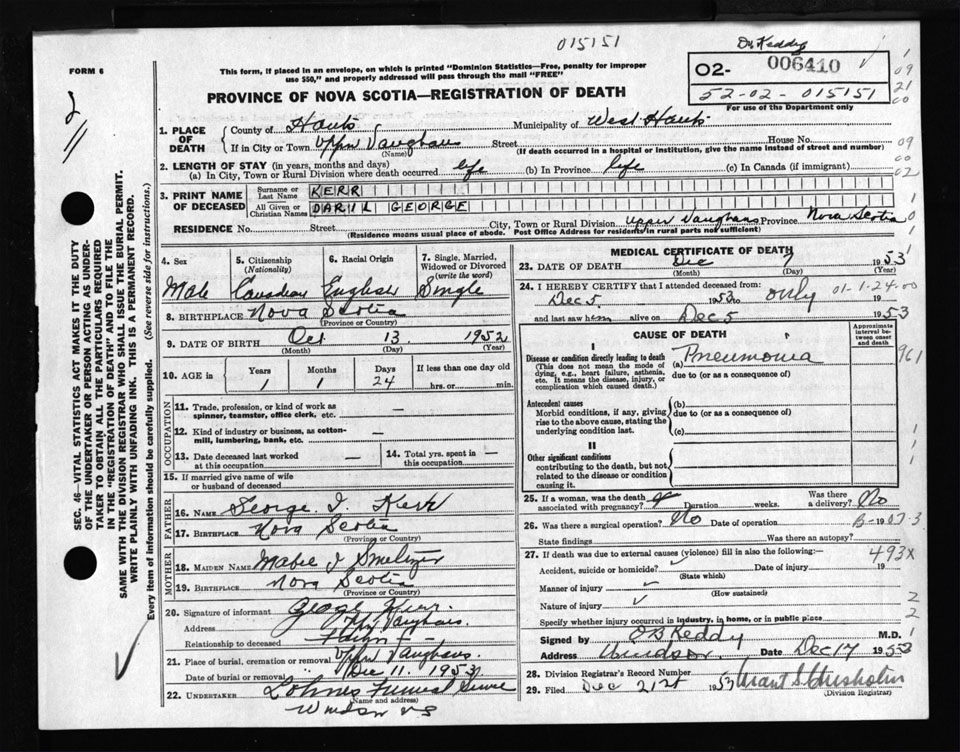 015151
Dr Keddy
FORM 6
This form, if placed in an envelope, on which is printed "Dominion Statistics—Free, penalty for improper
use $50," and properly addressed will pass through the mail "FREE"
O2- 006410
52-02-015151
For use of the Department only
PROVINCE OF NOVA SCOTIA—REGISTRATION OF DEATH
1. PLACE OF DEATH
County of Hants Municipality of West Hants
If in City or Town Upper Vaughans Street House No.
(Name) (If death occurred in a hospital or institution, give the name instead of street and number)
2. LENGTH OF STAY (in years, months and days)
(a) In City, Town or Rural Division where death occurred life (b) In Province life (c) In Canada (if immigrant)
3. PRINT NAME OF DECEASED
Surname or Last Name KERR
All Given or Christian Names DARIL GEORGE
RESIDENCE No. Street City, Town or Rural Division Upper Vaughans Province Nova Scotia
(Residence means usual place of abode. Post Office Address for residents in rural parts not sufficient)
4. Sex 5. Citizenship (Nationality) 6. Racial Origin 7. Single, Married, Widowed or Divorced (write the word)
Male Canadian English Single
8. BIRTHPLACE Nova Scotia
(Province or Country)
9. DATE OF BIRTH Oct 13 1952
(Month) (Day) (Year)
10. AGE in Years Months Days If less than one day
1 1 24 hrs. or min.
OCCUPATION
11. Trade, profession, or kind of work as spinner, teamster, office clerk, etc. —
12. Kind of industry or business, as cotton-mill, lumbering, bank, etc. —
13. Date deceased last worked at this occupation — 14. Total yrs. spent in this occupation —
15. If married give name of wife or husband of deceased
FATHER
16. NAME George I. Kerr
17. BIRTHPLACE Nova Scotia
(Province or Country)
MOTHER
18. MAIDEN NAME Mabel I Smeltzer
19. BIRTHPLACE Nova Scotia
(Province or Country)
20. Signature of informant George Kerr.
Address Upp Vaughans
Relationship to deceased Father
21. Place of burial, cremation or removal Uppr Vaughans.
Date of burial or removal Dec 11. 1953
22. UNDERTAKER Lohnes Funeral
(Name and address)
Windsor NS
MEDICAL CERTIFICATE OF DEATH
23. DATE OF DEATH Dec 7 1953
(Month) (Day) (Year)
24. I HEREBY CERTIFY that I attended deceased from:
Dec 5. 1953 to only 01-1-24-00
and last saw him alive on Dec 5 1953
CAUSE OF DEATH
Approximate interval between onset and death
I
Disease or condition directly leading to death
(This does not mean the mode of dying, e.g., heart failure, asthenia, etc. It means the disease, injury, or complication which caused death.)
(a) Pneumonia
due to (or as a consequence of)
961
Antecedent causes
Morbid conditions, if any, giving rise to the above cause, stating the underlying condition last.
(b)
due to (or as a consequence of)
(c)
II
Other significant conditions
contributing to the death, but not related to the disease or condition causing it.
25. If a woman, was the death associated with pregnancy? Duration weeks. Was there a delivery? No
26. Was there a surgical operation? No Date of operation 19
State findings Was there an autopsy?
27. If death was due to external causes (violence) fill in also the following:—
493x
Accident, suicide or homicide? Date of injury 19
(State which)
Manner of injury
(How sustained)
Nature of injury
Specify whether injury occurred in industry, in home, or in public place
Signed by O B Keddy M.D.
Address Windsor Date Dec 17 1953
28. Division Registrar's Record Number
29. Filed Dec 21st 1953 Grant S Chisholm
(Division Registrar)
SEC. 46—VITAL STATISTICS ACT MAKES IT THE DUTY
OF THE UNDERTAKER OR PERSON ACTING AS UNDER-
TAKER TO OBTAIN ALL THE PARTICULARS REQUIRED
IN THE "REGISTRATION OF DEATH" AND TO FILE THE
SAME WITH THE DIVISION REGISTRAR WHO SHALL ISSUE THE BURIAL PERMIT.
WRITE PLAINLY WITH UNFADING INK. THIS IS A PERMANENT RECORD.
Every item of information should be carefully supplied. (See reverse side for instructions.)